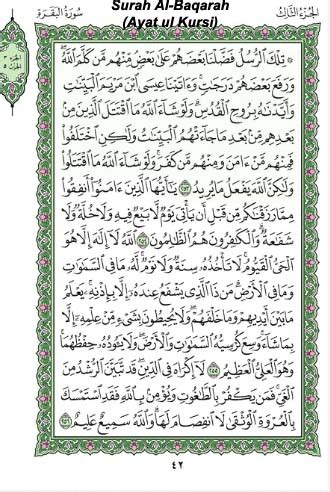 Surah Al-Baqarah
(Ayat ul Kursi)
الجزء الثالث
سورة البقرة
۞ تِلْكَ الرُّسُلُ فَضَّلْنَا بَعْضَهُمْ عَلَىٰ بَعْضٍ مِّنْهُم مَّن كَلَّمَ اللَّهُ
وَرَفَعَ بَعْضَهُمْ دَرَجَاتٍ وَءَاتَيْنَا عِيسَى ابْنَ مَرْيَمَ الْبَيِّنَاتِ
وَأَيَّدْنَاهُ بِرُوحِ الْقُدُسِ وَلَوْ شَاءَ اللَّهُ مَا اقْتَتَلَ الَّذِينَ مِنْ
بَعْدِهِم مِّنْ بَعْدِ مَا جَاءَتْهُمُ الْبَيِّنَاتُ وَلَٰكِنِ اخْتَلَفُوا
فَمِنْهُم مَّنْ ءَامَنَ وَمِنْهُم مَّن كَفَرَ وَلَوْ شَاءَ اللَّهُ مَا اقْتَتَلُوا
وَلَٰكِنَّ اللَّهَ يَفْعَلُ مَا يُرِيدُ ٢٥٣ يَا أَيُّهَا الَّذِينَ ءَامَنُوا أَنفِقُوا
مِمَّا رَزَقْنَاكُم مِّن قَبْلِ أَن يَأْتِيَ يَوْمٌ لَّا بَيْعٌ فِيهِ وَلَا خُلَّةٌ وَلَا
شَفَاعَةٌ وَالْكَافِرُونَ هُمُ الظَّالِمُونَ ٢٥٤ اللَّهُ لَا إِلَٰهَ إِلَّا هُوَ
الْحَيُّ الْقَيُّومُ لَا تَأْخُذُهُ سِنَةٌ وَلَا نَوْمٌ لَّهُ مَا فِي السَّمَاوَاتِ
وَمَا فِي الْأَرْضِ مَن ذَا الَّذِي يَشْفَعُ عِندَهُ إِلَّا بِإِذْنِهِ يَعْلَمُ
مَا بَيْنَ أَيْدِيهِمْ وَمَا خَلْفَهُمْ وَلَا يُحِيطُونَ بِشَيْءٍ مِّنْ عِلْمِهِ إِلَّا
بِمَا شَاءَ وَسِعَ كُرْسِيُّهُ السَّمَاوَاتِ وَالْأَرْضَ وَلَا يَئُودُهُ حِفْظُهُمَا
وَهُوَ الْعَلِيُّ الْعَظِيمُ ٢٥٥ لَا إِكْرَاهَ فِي الدِّينِ قَد تَّبَيَّنَ الرُّشْدُ مِنَ
الْغَيِّ فَمَن يَكْفُرْ بِالطَّاغُوتِ وَيُؤْمِن بِاللَّهِ فَقَدِ اسْتَمْسَكَ
بِالْعُرْوَةِ الْوُثْقَىٰ لَا انفِصَامَ لَهَا وَاللَّهُ سَمِيعٌ عَلِيمٌ ٢٥٦
٤٢